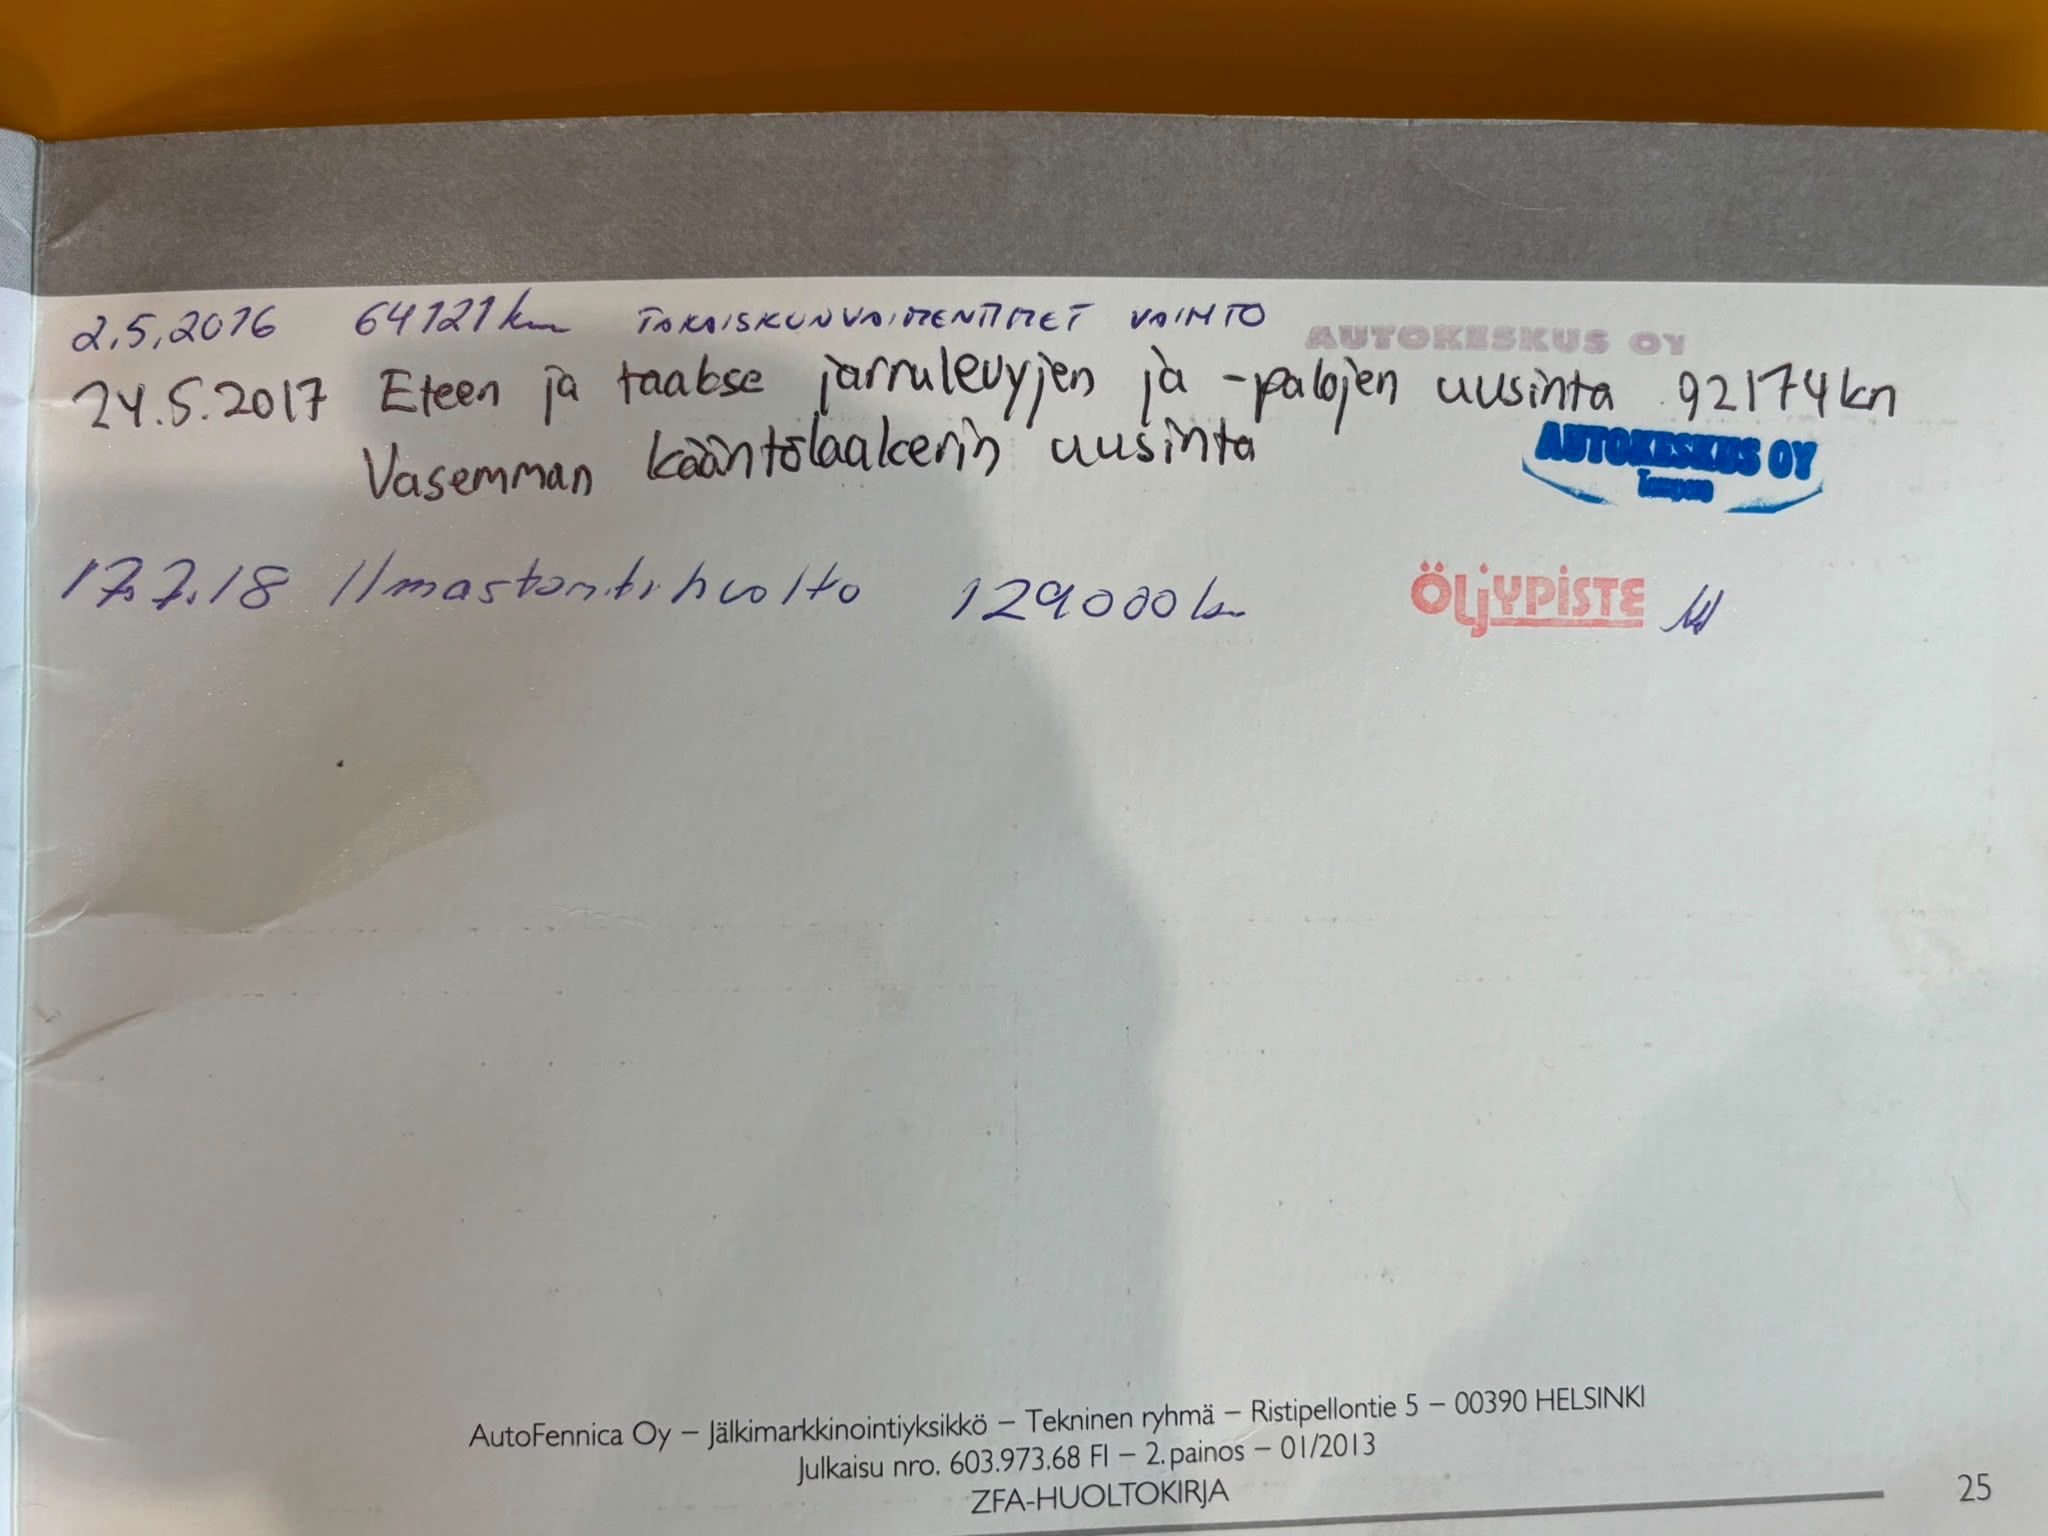 2.5.2016 64121km TAKAISKUNVAIMENTIMET VAIHTO AUTOKESKUS OY
24.5.2017 Eteen ja taakse jarrulevyjen ja -palojen uusinta 92174km
Vasemman kääntölaakerin uusinta AUTOKESKUS OY
Tampere
17.7.18 Ilmastointihuolto 129000km ÖLJYPISTE
AutoFennica Oy – Jälkimarkkinointiyksikkö – Tekninen ryhmä – Ristipellontie 5 – 00390 HELSINKI
Julkaisu nro. 603.973.68 FI – 2. painos – 01/2013
ZFA-HUOLTOKIRJA
25